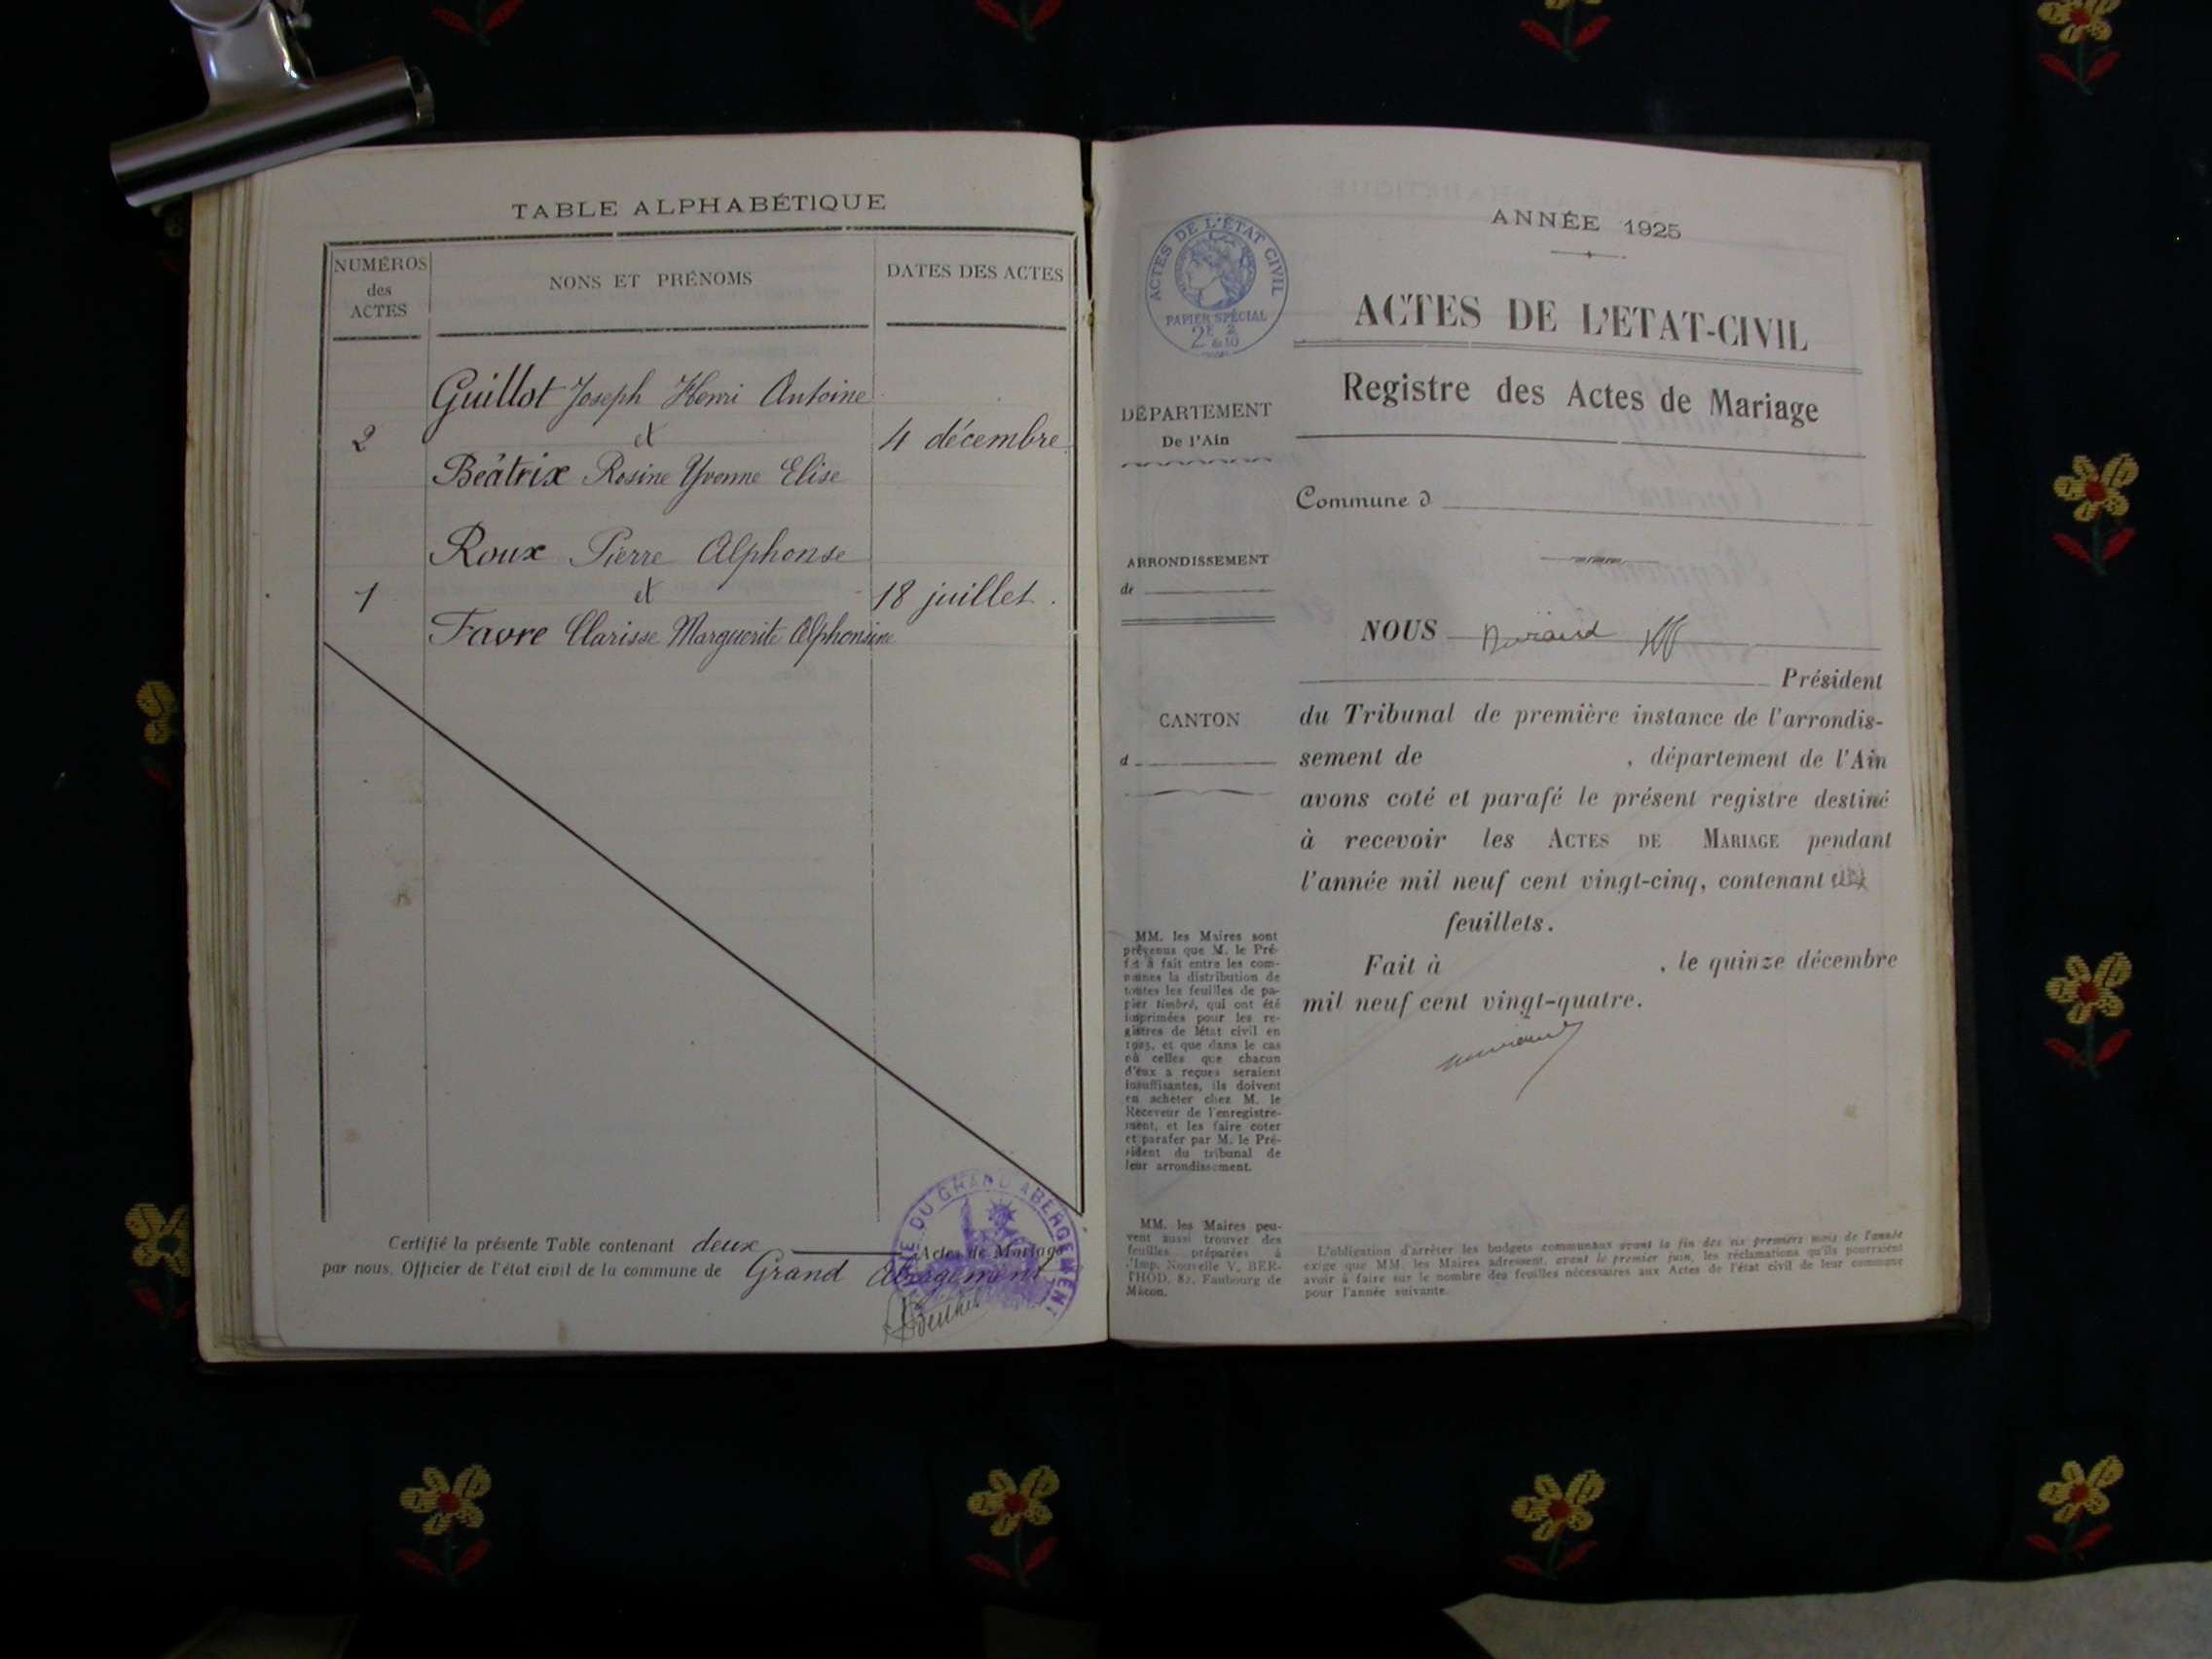 TABLE ALPHABÉTIQUE
NUMÉROS
des
ACTES
NONS ET PRÉNOMS
DATES DES ACTES
Guillot Joseph Henri Antoine
2 et 4 décembre
Béatrix Rosine Yvonne Elise
Roux Pierre Alphonse
1 et 18 juillet.
Favre Clarisse Marguerite Alphonsine
Certifié la présente Table contenant deux Actes de Mariage
par nous, Officier de l'état civil de la commune de Grand Abergement
DU GRAND ABERGEMENT
ANNÉE 1925
ACTES DE L'ÉTAT CIVIL
PAPIER SPÉCIAL
ACTES DE L'ETAT-CIVIL
Registre des Actes de Mariage
DÉPARTEMENT
De l'Ain
Commune d
ARRONDISSEMENT
de
NOUS
Président
CANTON
d
du Tribunal de première instance de l'arrondis-
sement de , département de l'Ain
avons coté et parafé le présent registre destiné
à recevoir les ACTES DE MARIAGE pendant
l'année mil neuf cent vingt-cinq, contenant
feuillets.
Fait à , le quinze décembre
mil neuf cent vingt-quatre.
MM. les Maires sont
prévenus que M. le Pré-
fet a fait entre les com-
munes la distribution de
toutes les feuilles de pa-
pier timbré, qui ont été
imprimées pour les re-
gistres de létat civil en
1925, et que dans le cas
où celles que chacun
d'eux a reçues seraient
insuffisantes, ils doivent
en acheter chez M. le
Receveur de l'enregistre-
ment, et les faire coter
et parafer par M. le Pré-
sident du tribunal de
leur arrondissement.
MM. les Maires peu-
vent aussi trouver des
feuilles préparées à
l'Imp. Nouvelle V. BER-
THOD, 82, Faubourg de
Mâcon.
L'obligation d'arrêter les budgets communaux avant la fin des six premiers mois de l'année
exige que MM. les Maires adressent, avant le premier juin, les réclamations qu'ils pourraient
avoir à faire sur le nombre des feuilles nécessaires aux Actes de l'état civil de leur commune
pour l'année suivante.